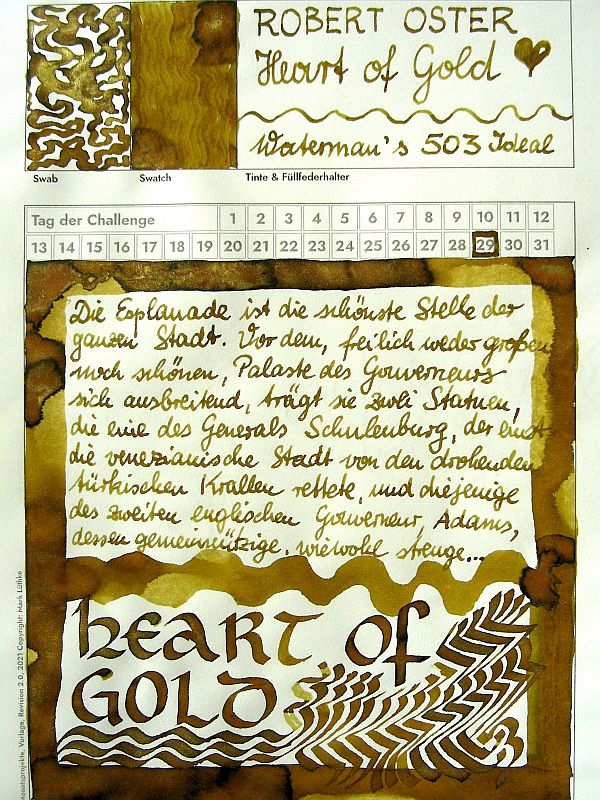 ROBERT OSTER
Heart of Gold
Waterman's 503 Ideal
Swab Swatch Tinte & Füllfederhalter
Tag der Challenge 1 2 3 4 5 6 7 8 9 10 11 12
13 14 15 16 17 18 19 20 21 22 23 24 25 26 27 28 29 30 31
Die Esplanade ist die schönste Stelle der
ganzen Stadt. Vor dem, freilich weder großen
noch schönen, Palaste des Gouverneurs
sich ausbreitend, trägt sie zwei Statuen,
die eine des Generals Schulenburg, der einst
die venezianische Stadt von den drohenden
türkischen Krallen rettete, und diejenige
des zweiten englischen Gouverneur, Adams,
dessen gemeinnützige, wiewohl strenge...
heart of
GOLD
Monatsprojekte, Vorlage, Revision 2.0, 2021 Copyright: Mark Lüthke